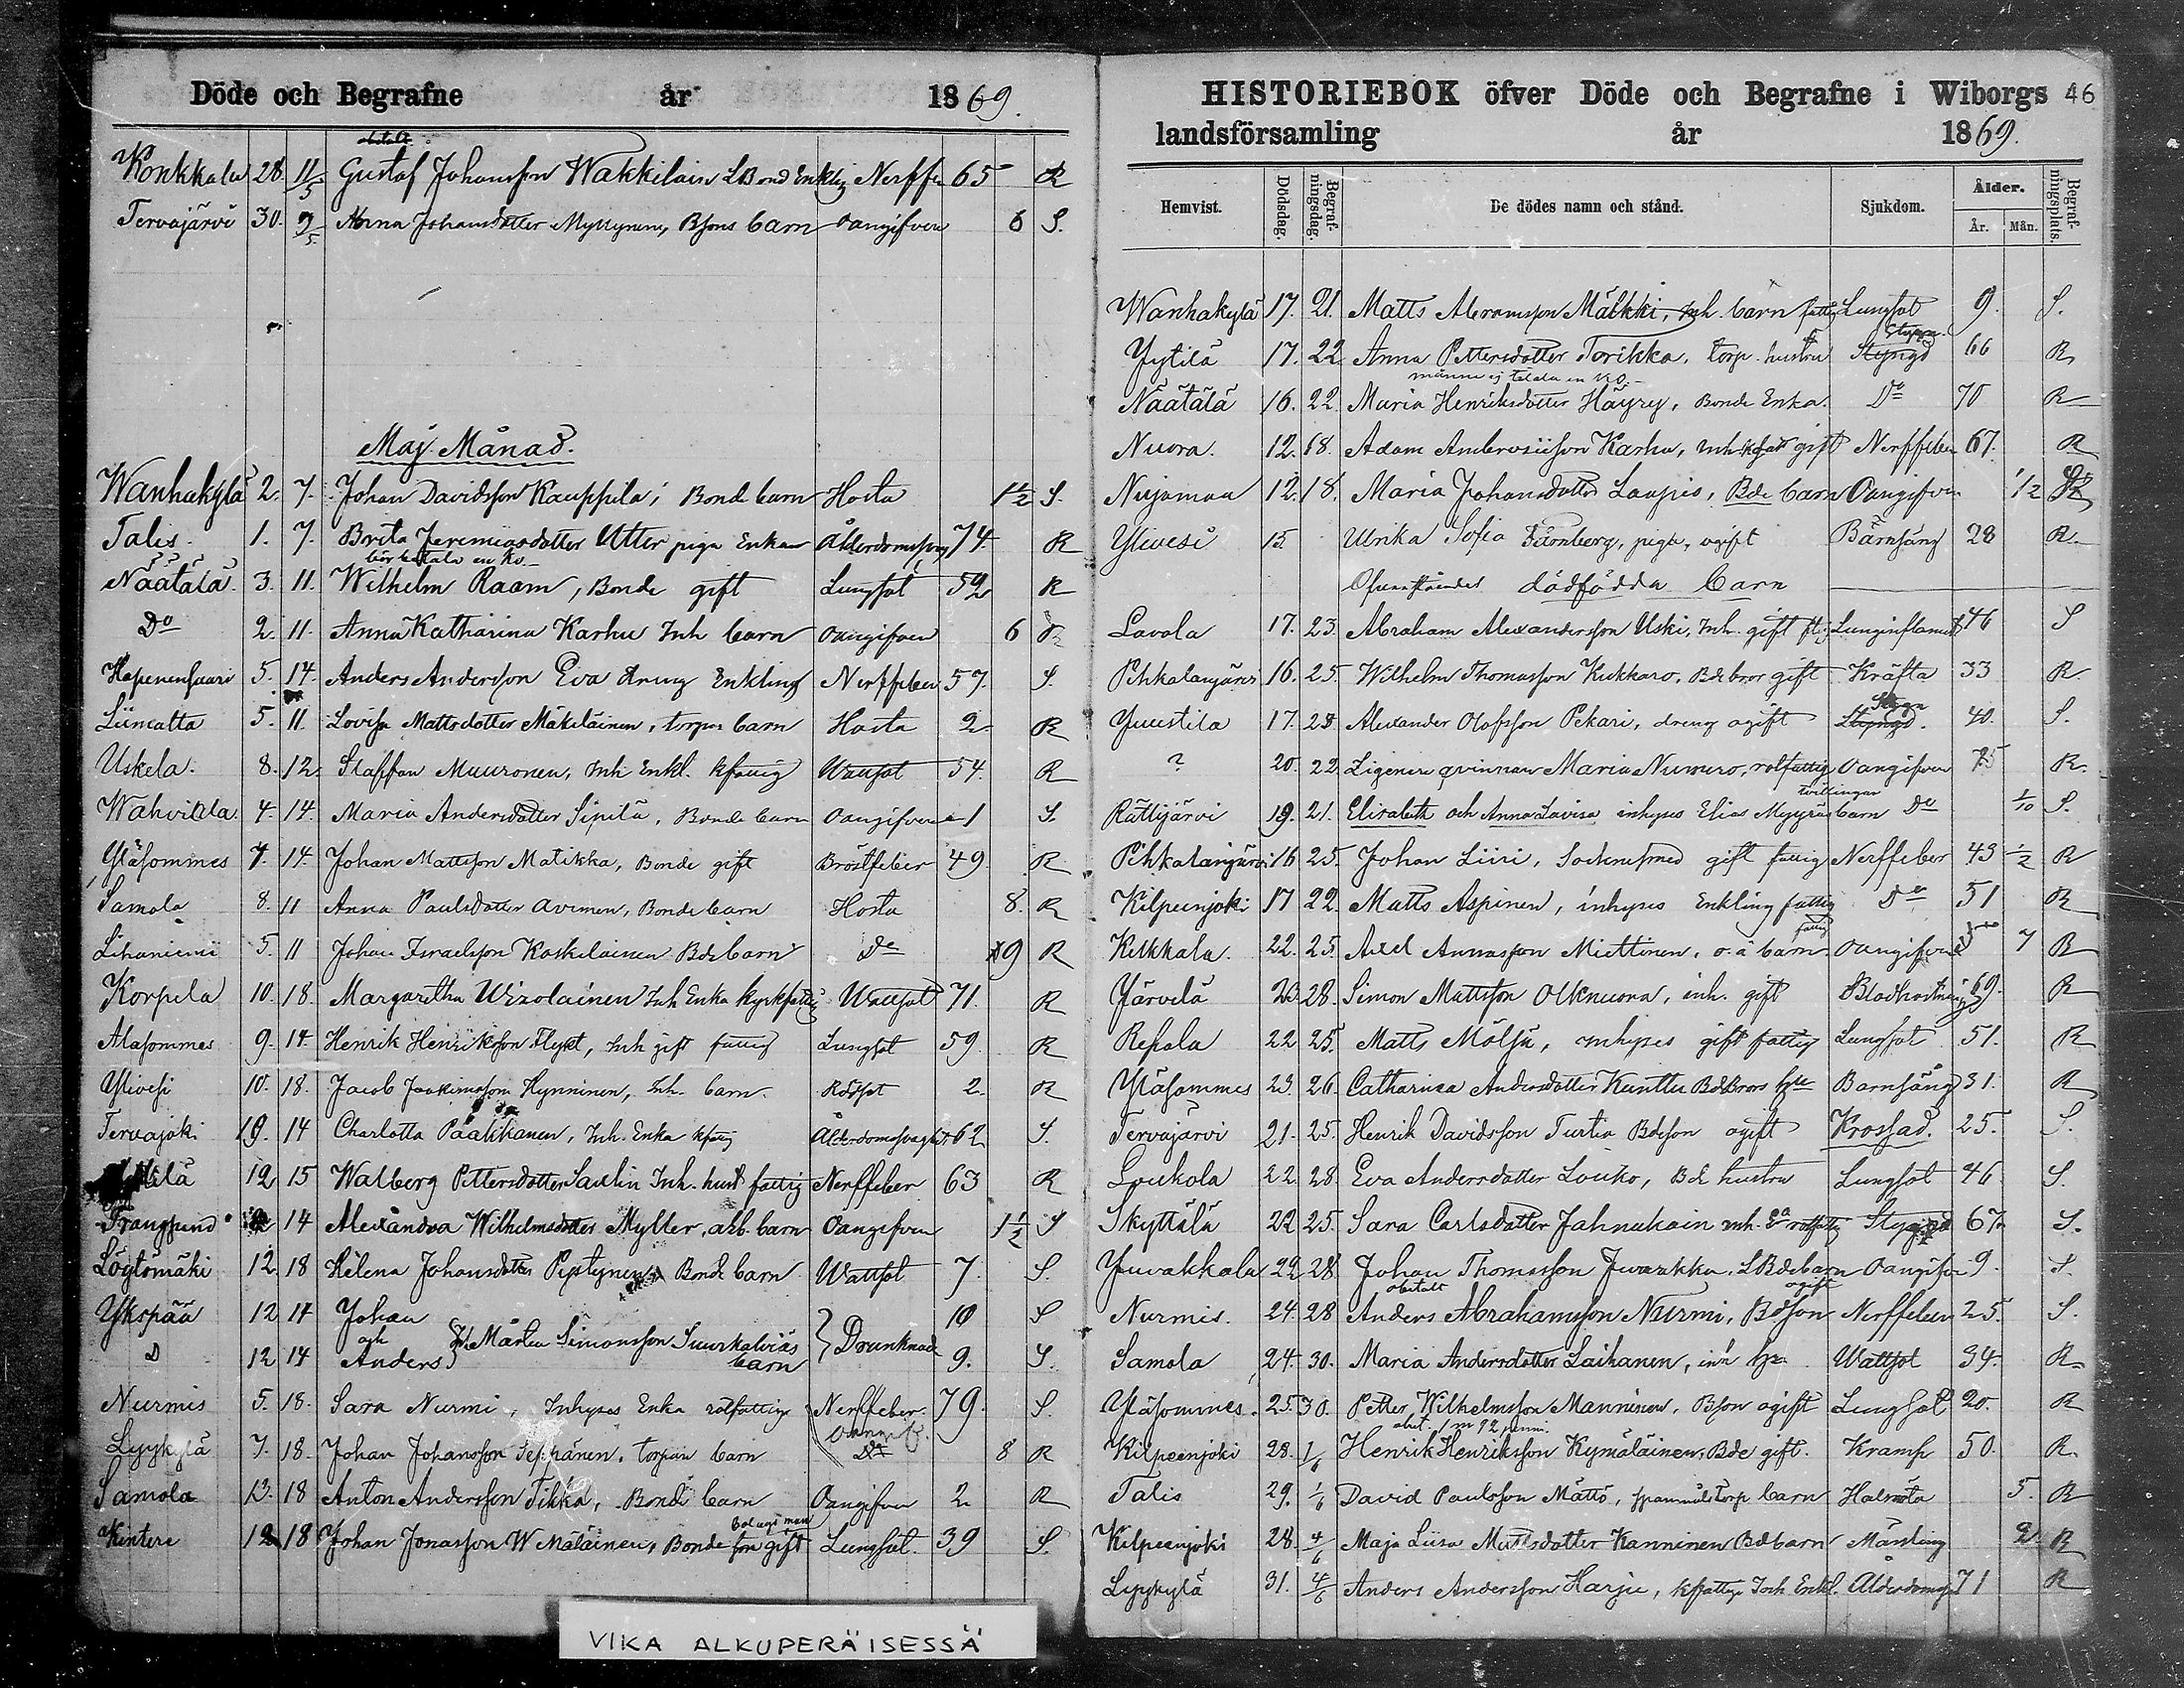 Döde och Begrafne år 1869.
obetalt
Konkkala 28. 11/5 Gustaf Johansson Wakkilain LBond Enkling Nerffe 65 R
Tervajärvi 30. 9/5 Anna Johansdotter Myrrynen, Bsons barn oangifven 6 S.
Maj Månad.
Wanhakylä 2. 7. Johan Davidsson Kauppila, Bonde barn Hosta 1½ S.
Talis 1. 7. Brita Jeremiasdotter Utter piga Enka Ålderdomssvag 74. R
bör betala en ko
Näätälä 3. 11. Wilhelm Raam, Bonde gift Lungsot 52 R
Do 2. 11. Anna Katharina Karhu Inh barn oangifven 6 R
Hapenensaari 5. 14. Anders Andersson Eva dreng Enkling Nerffeber 57. S.
Liimatta 5. 11. Lovisa Mattsdotter Mäkeläinen, torpar barn Hosta 2 R
Uskela. 8. 12. Staffan Muuronen, Inh Enkl. kfattig Wattsot 54. R
Wahvilala 4. 14. Maria Andersdotter Sipilä, Bonde barn Oangifven 1 S.
Yläsommes 7. 14. Johan Mattsson Matikka, Bonde gift Bröstfeber 49. R
Samola 8. 11 Anna Paulsdotter Avinen, Bonde barn Hosta 8. R
Lihaniemi 5. 11 Johan Israelsson Koskelainen Bde barn Do 9 R
Korpela 10. 18. Margaretha Wizolainen Inh Enka kyrkfattig Wattsot 71. R
Alasommes 9. 14 Henrik Henriksson Flykt, Inh gift fattig Lungsot 59. R
Ylivesi 10. 18. Jacob Joakimsson Hynninen, Inh. barn. Rödsot 2. R
Tervajoki 19. 14 Charlotta Päälikänen, Inh. Enka kfattig Ålderdomssvaghet 62 S.
12 15 Walberg Pettersdotter Saxlin Inh. hust fattig Nerffeber 63 R
Trångsund 14 Alexandra Wilhelmsdotter Myller, arb. barn Oangifven 1½ S
Löytömäki 12. 18 Helena Johansdotter Pystynen Bonde barn Wattsot 7. S.
Ykspää 12 14 Johan 10 S
och Inh Mårten Simonsson Suurkalviäs barn Drunknade
D 12 14 Anders 9. S.
Nurmis 5. 18. Sara Nurmi, Inhyses Enka rotfattig Nerffeber. 79. S.
Lyykylä 7. 18. Johan Johansson Seppänen, torpar barn 8 R
Samola 13. 18 Anton Andersson Tikka, Bonde barn Oangifven 2 R
bolagsman
Kintere 12 18 Johan Jonasson W Mäläinen, Bonde son gift Lungsot. 39 S.
VIKA ALKUPERÄISESSÄ
HISTORIEBOK öfver Döde och Begrafne i Wiborgs 46
landsförsamling år 1869.
Hemvist. Dödsdag. Begrafningsdag. De dödes namn och stånd. Sjukdom. Ålder. År. Mån. Begrafningsplats.
Wanhakylä 17. 21. Matts Abramsson Mälkki, Inh. barn fattig Lungsot 9. S.
Yytilä 17. 22 Anna Pettersdotter Torikka, torp. hustru Styngd 66 R
Näätälä 16. 22 Maria Henriksdotter Häyry, Bonde Enka. Do 70 R
Nuora. 12. 18. Adam Ambrosiisson Karhu, Inh gift Nerffeber 67. R
Nujamaa 12. 18. Maria Johansdotter Laapio, Bde barn Oangifven ½
Ylivesi 15. Ulrika Sofia Tärnberg, piga, ogift Barnsäng 28 R.
Ofvanstående dödfödda barn
Lavola 17. 23. Abraham Alexandersson Uski, Inh. gift ftg Lunginflamat 46 S
Pihkalanjärvi 16. 25. Wilhelm Thomasson Kukkaro, Bde bror gift Kräfta 33 R
Yuustila 17. 23. Alexander Olofsson Pekari, dreng ogift Styngd. 40. S.
? 20. 22. Zigenen qvinnan Maria Numero, rotfattig Oangifven 75 R.
tvillingar
Rättijärvi 19. 21. Elisabeth och Anna Lovisa inhyses Elias Myyräs barn Do 1/10 S.
Pihkalanjärvi 16 25. Johan Liiri, Sockensmed gift fattig Nerffeber 43 ½ R
Kilpeenjoki 17 22. Matts Aspinen, inhyses Enkling fattig Do 51 R
fattig
Kelkkala. 22. 25. Axel Annasson Miettinen, o. ä barn. Oangifven 7 R
Järvelä 23. 28. Simon Mattsson Olknuora, inh. gift Blodhostning 69. R
Repola 22 25. Matts Mölsä, inhyses gift fattig Lungsot 51. R
Yläsommes 23. 26. Catharina Andersdotter Kunttu BdeBrors hu Barnsäng 31. R
Tervajärvi 21. 25. Henrik Davidsson Turtia Bdeson ogift Krossad. 25. S.
Loukola 22 28 Eva Andersdotter Louko, Bde hustru Lungsot 46 S.
Skyttälä 22 25. Sara Carlsdotter Jahnukain inh. Ea rotfattig Styngd 67. S.
Juvakkala 22 28 Johan Thomasson Juvakka, LBdebarn Oangifven 9. S.
obetalt ogift
Nurmis. 24. 28 Anders Abrahamsson Nurmi, Bdson Nerffeber 25. S.
Samola 24. 30. Maria Andersdotter Laihanen, inh Wattsot 34. R
Yläsommes. 25. 30. Petter Wilhelmsson Manninen, Bson ogift Lungsot 20. R
Kilpeenjoki 28. 1/6 Henrik Henriksson Kymäläinen, Bde gift. Kramp 50. R.
Talis 29. 1/6 David Paulsson Mättö, torp barn Halsröta 5. R
Kilpeenjoki 28. 4/6 Maja Liisa Mattsdotter Kanninen Bdebarn Mässling 2. R
Lyykylä 31. 4/6 Anders Andersson Harju, kfattig Inh. Enkl. Ålderdoms 71 R